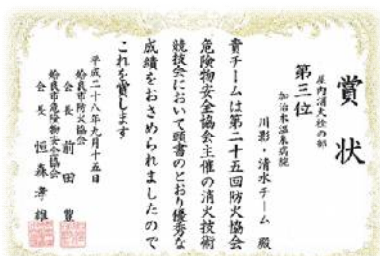 賞状
屋内消火栓の部
第三位
加治木温泉病院
川影・清水チーム 殿
貴チームは第二十五回防火協会
危険物安全協会主催の消火技術
競技会において頭書のとおり優秀な
成績をおさめられましたので
これを賞します
平成二十八年九月十五日
姶良市防火協会
会長 前田 豊
姶良市危険物安全協会
会長 恒森 孝雄